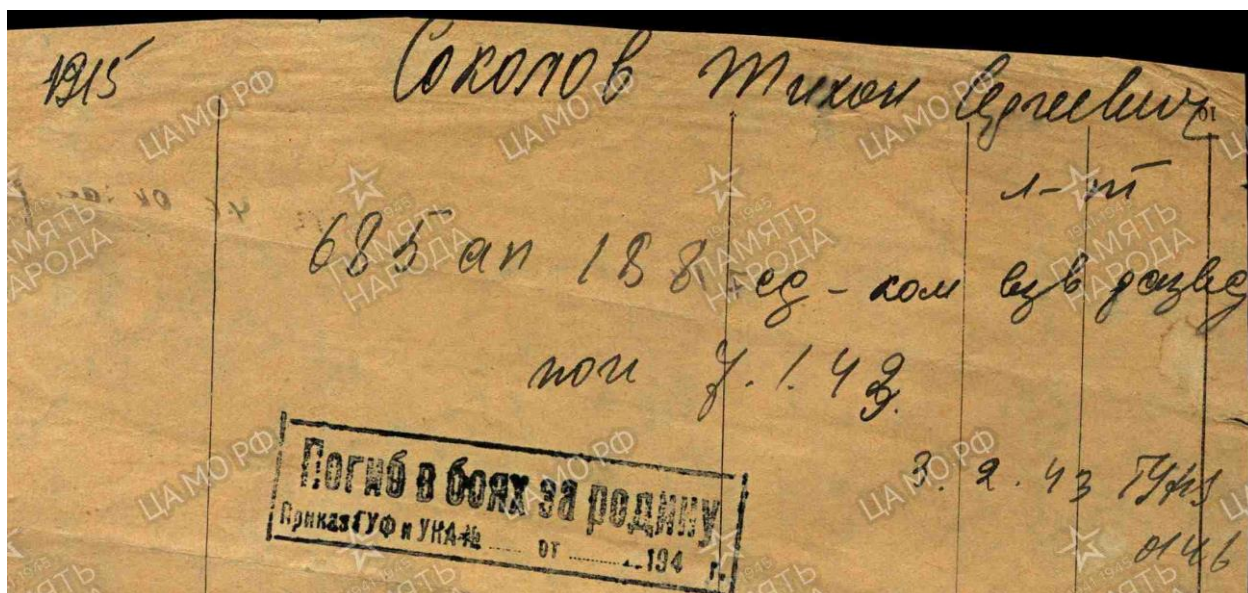 1915 Соколов Тихон Сергеевич
л-т
685 ап 188 сд - ком взв развед
пог 7.1.43.
Погиб в боях за родину
Приказ ГУФ и УКА № ...... от ...........194 г.
3.2.43 ГУФ
0146
ЦАМО РФ
ПАМЯТЬ
НАРОДА
1941-1945